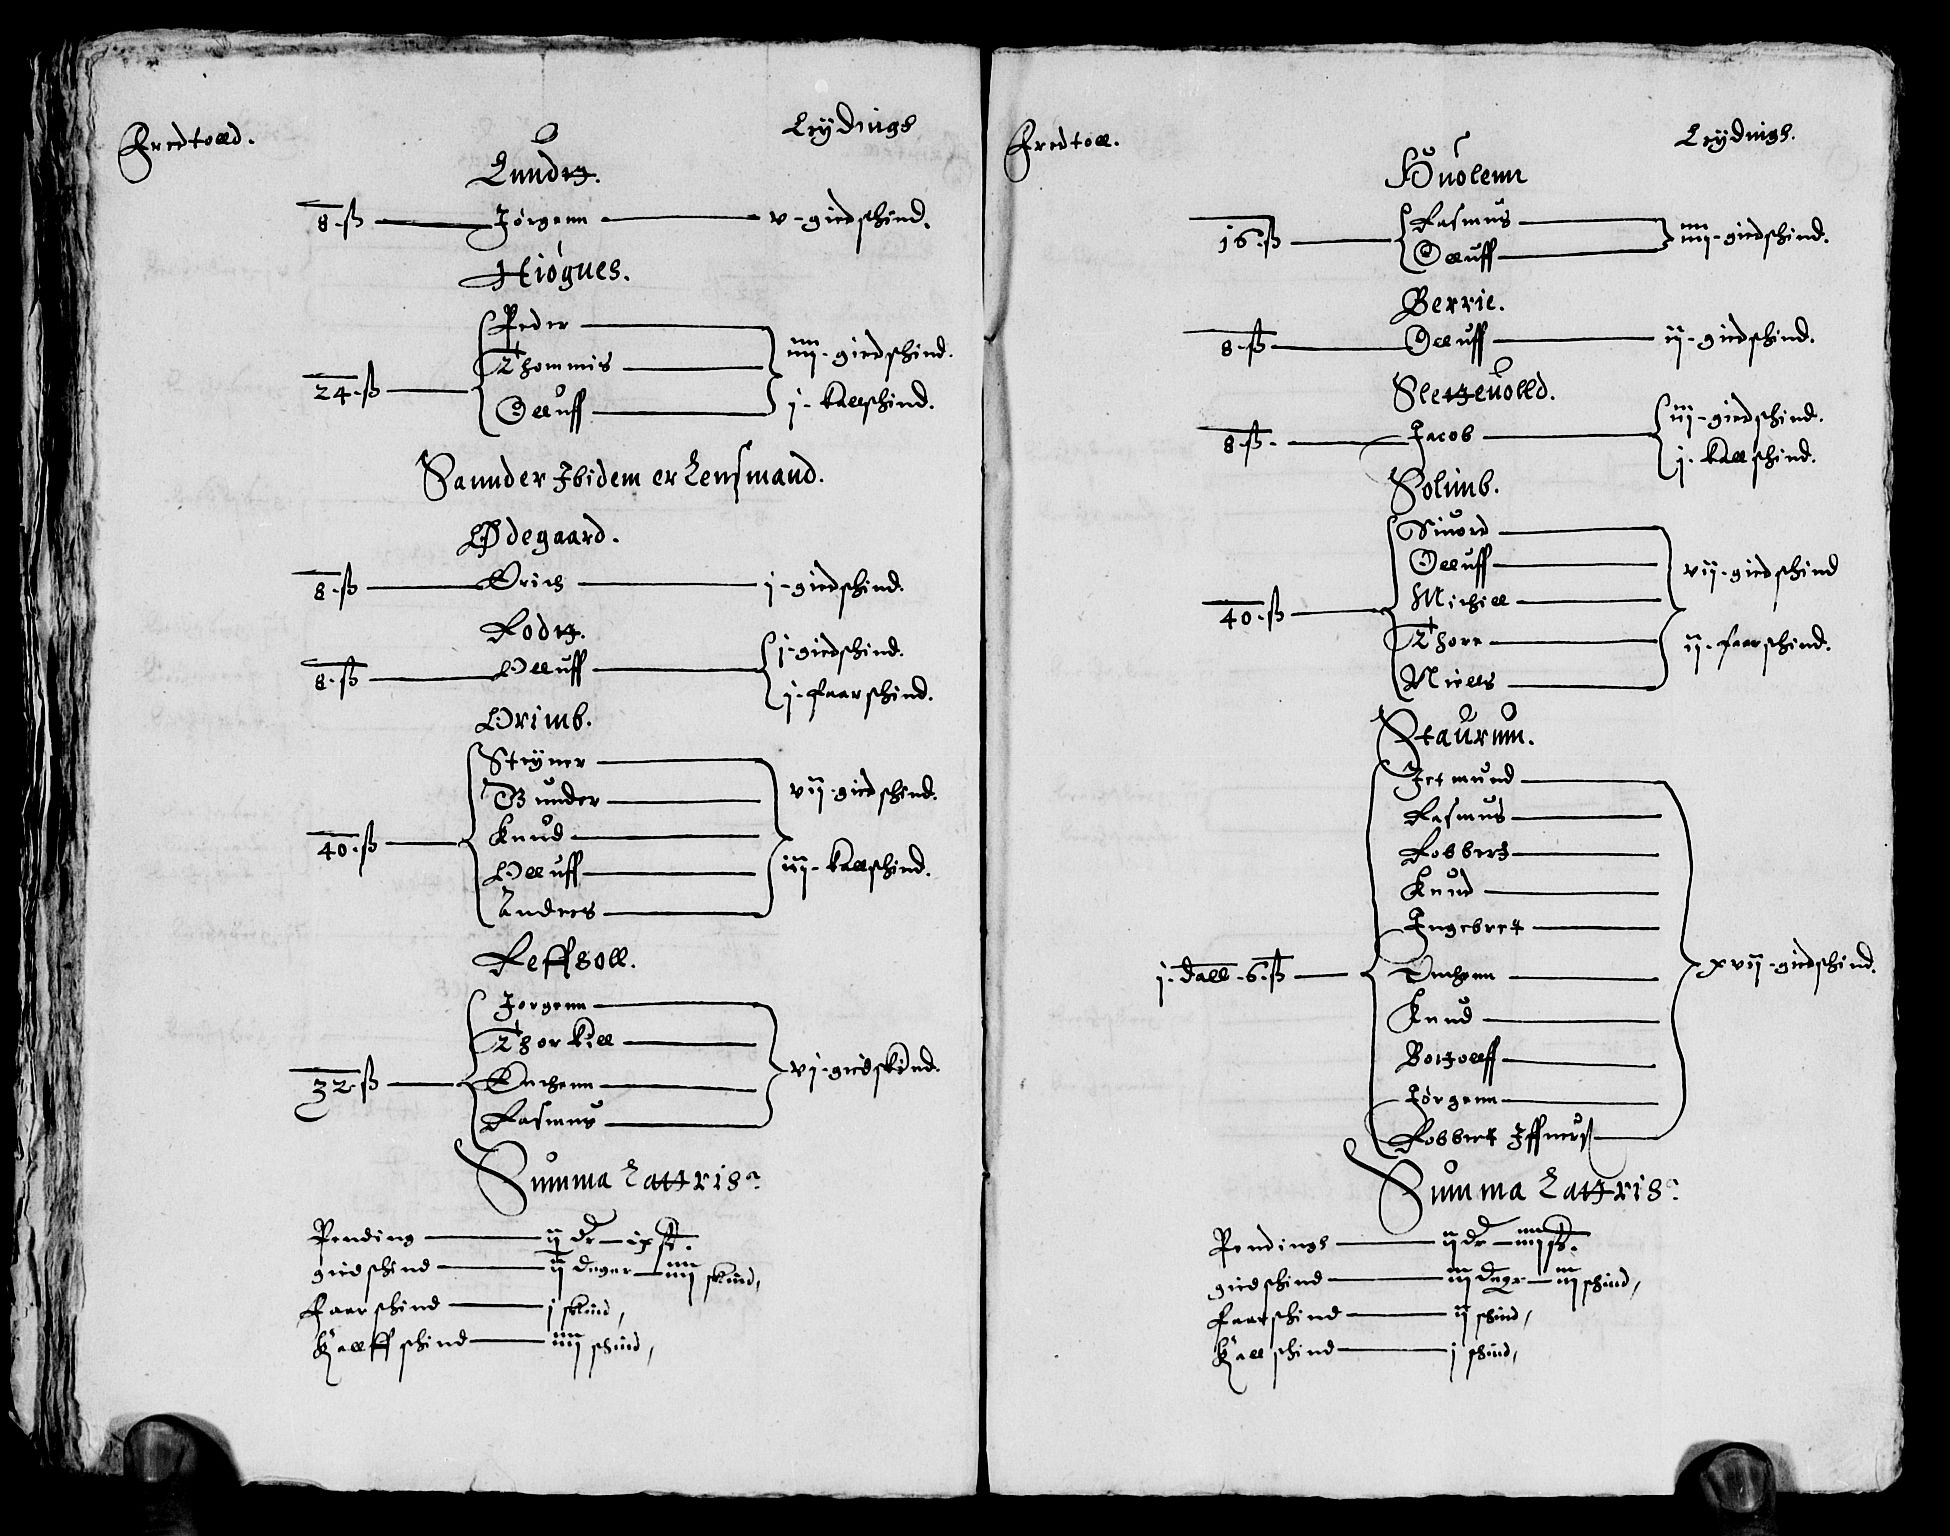 Fredtolld.
Leÿdings
Lundtz.
8 ß Jørgenn v - giedschind.
Hiøgnes.
24 ß
Peder
Thommis
Olluff
iiij - giedschind.
j - kallschind.
Saunder Ibidem er Lensmand.
Ødegaard.
8 ß Erich j - giedschind.
Rodtz.
8 ß Olluff
j - giedschind.
j - faarschind.
Orimb.
40 ß
Steÿner
Gunder
Knud
Olluff
Anders
vij - giedschind.
iij - kallschind.
Reffsoll.
32 ß
Jorgenn
Thorkill
Enchenn
Rasmus
vj - giedskind.
Summa Lattris:
Pending ij dr ix ß.
giedschind ij deger iiij skind,
Faarschind j skind,
Kallffschind iiij schind,
Fredtoll.
Leÿdings.
Huolenn
16 ß
Rasmus
Olluff
iiij - giedschind.
Berrie.
8 ß Olluff ij - giedschind.
Sletzeuolld.
8 ß Jacob
iij - giedschind.
j - kallschind.
Solimb.
40 ß
Siuord
Olluff
Michell
Thore
Niells
vij - giedschind
ij - faarschind.
Staurum.
j - dall - 6 ß
Jetmund
Rasmus
Robbert
Knud
Ingebret
Enchenn
Knud
Botolff
Jørgenn
Robbert Iffuerß
xvij - giedschind.
Summa Lattris:
Pendings ij dr iiij ß.
giedschind iij degr iij schind,
Faarschind ij schind,
Kallschind j schind,